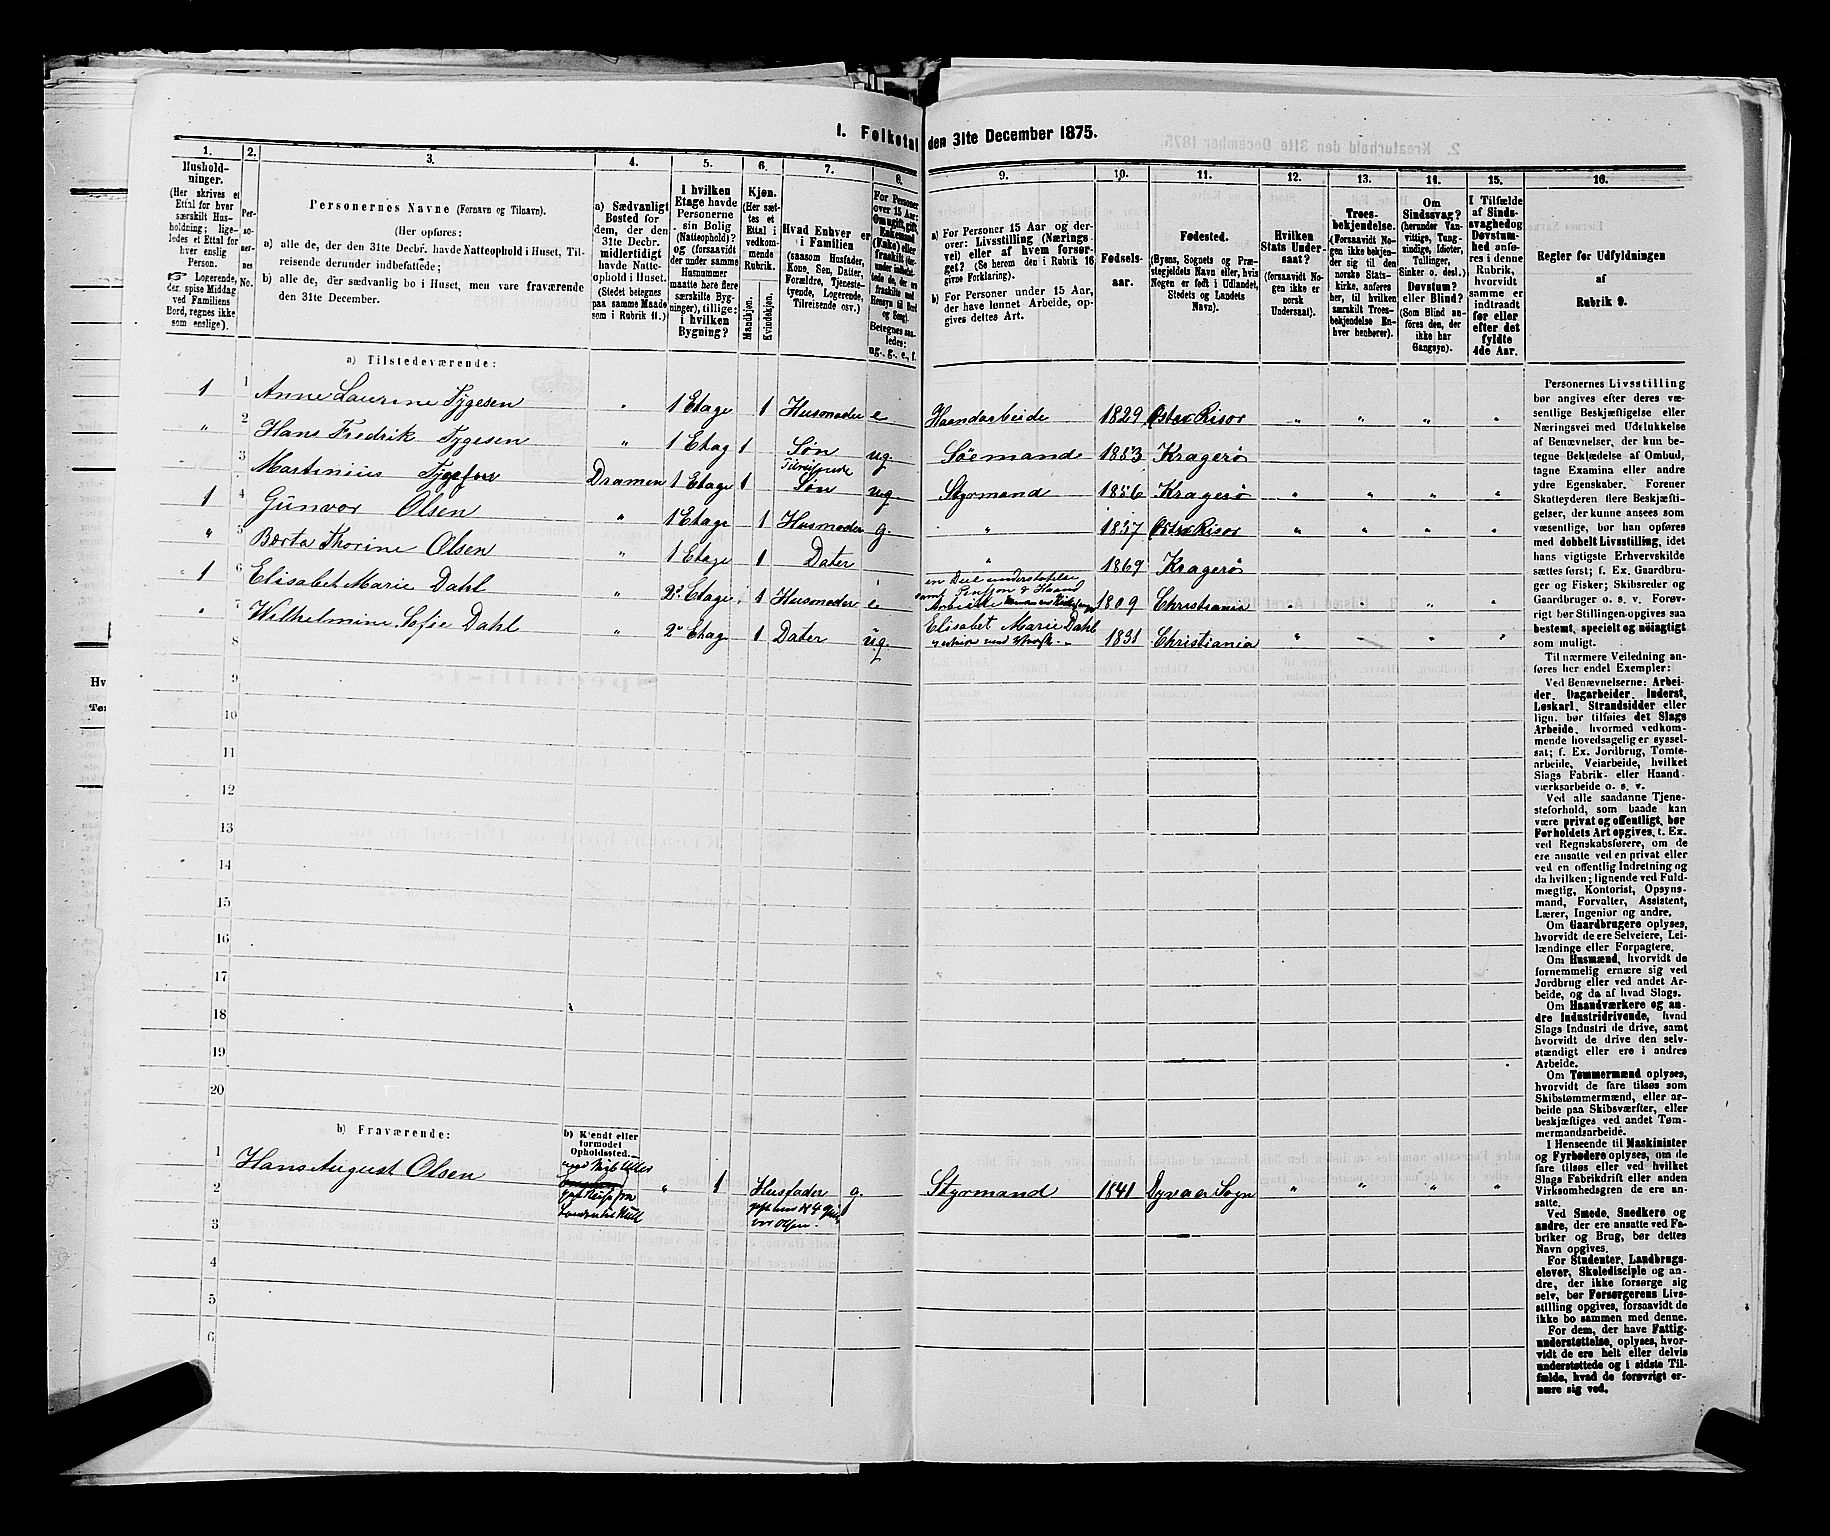 I. Folketal den 31te December 1875.
1. 2. 3. 4. 5. 6. 7. 8. 9. 10. 11. 12. 13. 14. 15. 16.
Hushold-
ninger.
(Her skrives et
Ettal for hver
særskilt Hus-
holdning; lige-
ledes et Ettal for
hver enslig
Person.
☞ Logerende,
der spise Middag
ved Familiens
Bord, regnes ikke
som enslige).
Per-
so-
ner-
nes
No.
Personernes Navne (Fornavn og Tilnavn).
(Her opføres:
a) alle de, der den 31te Decbr. havde Natteophold i Huset, Til-
reisende derunder indbefattede;
b) alle de, der sædvanlig bo i Huset, men vare fraværende
den 31te December.
a) Sædvanligt
Bosted for
dem, der den
31te Decbr.
midlertidigt
havde Natte-
ophold i Huset.
(Stedet betegnes
paa samme Maade
som i Rubrik 11.)
I hvilken
Etage havde
Personerne
sin Bolig
(Natteophold)?
og (forsaavidt
der under samme
Husnummer
maatte høre flere
særskilte Byg-
ninger), tillige:
i hvilken
Bygning?
Kjøn.
(Her sæt-
tes et
Ettal i
vedkom-
mende
Rubrik.
Mandkjøn.
Kvindekjøn.
Hvad Enhver er
i Familien
(saasom Husfader,
Kone, Søn, Datter,
Forældre, Tjeneste-
tyende, Logerende,
Tilreisende osv.)
For Personer
over 15 Aar:
Om ugift, gift,
Enkemand
(Enke) eller
fraskilt
Betegnes saa-
ledes:
ug., g., e., f.
a) For Personer 15 Aar og der-
over: Livsstilling (Nærings-
vei) eller af hvem forsør-
get? (Se herom den i Rubrik 16
givne Forklaring).
b) For Personer under 15 Aar,
der have lønnet Arbeide, op-
gives dettes Art.
Fødsels-
aar.
Fødested.
(Byens, Sognets og Præ-
stegjeldets Navn eller, hvis
Nogen er født i Udlandet,
Stedets og Landets
Navn).
Hvilken
Stats Under-
saat?
(forsaavidt No-
gen ikke er
norsk
Undersaat).
Troes-
bekjendelse.
(Forsaavidt No-
gen ikke bekjen-
der sig til den
norske Stats-
kirke, anføres
her, til hvilken
særskilt Troes-
bekjendelse En-
hver henhører).
Om
Sindssvag?
(herunder Van-
vittige, Tung-
sindige, Idioter,
Tullinger,
Sinker o. desl.)
Døvstum?
eller Blind?
(Som Blind an-
føres den, der
ikke har
Gangsyn).
I Tilfælde
af Sinds-
svaghed og
Døvstum-
hed anfø-
res i denne
Rubrik,
hvorvidt
samme er
indtraadt
før eller
efter det
fyldte
4de Aar.
Regler for Udfyldningen
af
Rubrik 9.
a) Tilstedeværende:
1 1 Anne Laurine Tygesen " 1 Etage 1 Husmoder e Haandarbeide 1829 Østre Risør " " " "
" 2 Hans Fredrik Tygesen " 1 Etag 1 Søn ug. Søemand 1853 Kragerø
3 Martinius Dramen 1 Etage 1 Søn ug. Styrmand 1856 Kragerø " " " "
1 4 Gunvor Olsen " 1 Etage 1 Husmoder g. " 1837 Østre Risør " " " "
" 5 Berta Thorine Olsen " 1 Etage 1 Dater " 1869 Kragerø
1 6 Elisabet Marie Dahl " 2. Etage 1 Husmoder e Arbeide 1809 Christiania " " " "
" 7 Wilhelmine Sofie Dahl " 2 Etag 1 Dater ug. Elisabet Marie Dahl 1831 Christiania " " " "
8
9
10
11
12
13
14
15
16
17
18
19
20
b) Fraværende:
b) Kjendt eller
formodet
Opholdssted.
1 Hans August Olsen " 1 Husfader g. Styrmand 1841 Sogn " " " "
2
3
4
5
6
Personernes Livsstilling
bør angives efter deres væ-
sentlige Beskjæftigelse eller
Næringsvei med Udelukkelse
af Benævnelser, der kun be-
tegne Beklædelse af Ombud,
tagne Examina eller andre
ydre Egenskaber. Forener
Skatteyderen flere Beskjæfti-
gelser, der kunne ansees som
væsentlige, bør han opføres
med dobbelt Livsstilling, idet
hans vigtigste Erhvervskilde
sættes først; f. Ex. Gaardbru-
ger og Fisker; Skibsreder og
Gaardbruger o. s. v. Forøv-
rigt bør Stillingen opgives saa
bestemt, specielt og nøiagtigt
som muligt.
Til nærmere Veiledning an-
føres her endel Exempler:
Ved Benævnelserne: Arbei-
der, Dagarbeider, Inderst,
Løskarl, Strandsidder eller
lign. bør tilføies det Slags
Arbeide, hvormed vedkom-
mende hovedsagelig er syssel-
sat; f. Ex. Jordbrug, Tomte-
arbeide, Veiarbeide, hvilket
Slags Fabrik- eller Haand-
værksarbeide o. s. v.
Ved alle saadanne Tjene-
steforhold, som baade kan
være privat og offentligt, bør
Forholdets Art opgives, t. Ex.
ved Regnskabsførere, om de
ere ansatte ved en privat eller
ved en offentlig Indretning og
da hvilken; lignende ved Fuld-
mægtig, Kontorist, Opsyns-
mand, Forvalter, Assistent,
Lærer, Ingeniør og andre.
Om Gaardbrugere oplyses,
hvorvidt de ere Selveiere, Lei-
lændinge eller Forpagtere.
Om Husmænd, hvorvidt de
fornemmelig ernære sig ved
Jordbrug eller ved andet Ar-
beide, og da af hvad Slags.
Om Haandværkere og an-
dre Industridrivende, hvad
Slags Industri de drive, samt
hvorvidt de drive den selv-
stændigt eller ere i andres
Arbeide.
Om Tømmermænd oplyses,
hvorvidt de fare tilsøs som
Skibstømmermænd, eller ar-
beide paa Skibsværfter, eller
beskjæftiges ved andet Tøm-
mermandsarbeide.
I Henseende til Maskinister
og Fyrbødere oplyses, om de
fare tilsøs eller ved hvilket
Slags Fabrikdrift eller anden
Virksomhedsgren de ere an-
satte.
Ved Smede, Snedkere og
andre, der ere ansatte ved Fa-
briker og Brug, bør dettes
Navn opgives.
For Studenter, Landbrugs-
elever, Skoledisciple og an-
dre, der ikke forsørge sig
selv, bør Forsørgerens Livs-
stilling opgives, forsaavidt de
ikke bo sammen med denne.
For dem, der have Fattig-
understøttelse, oplyses, hvor-
vidt de ere helt eller delvis
understøttede og i sidste Til-
fælde, hvad de forøvrigt er-
nære sig ved.